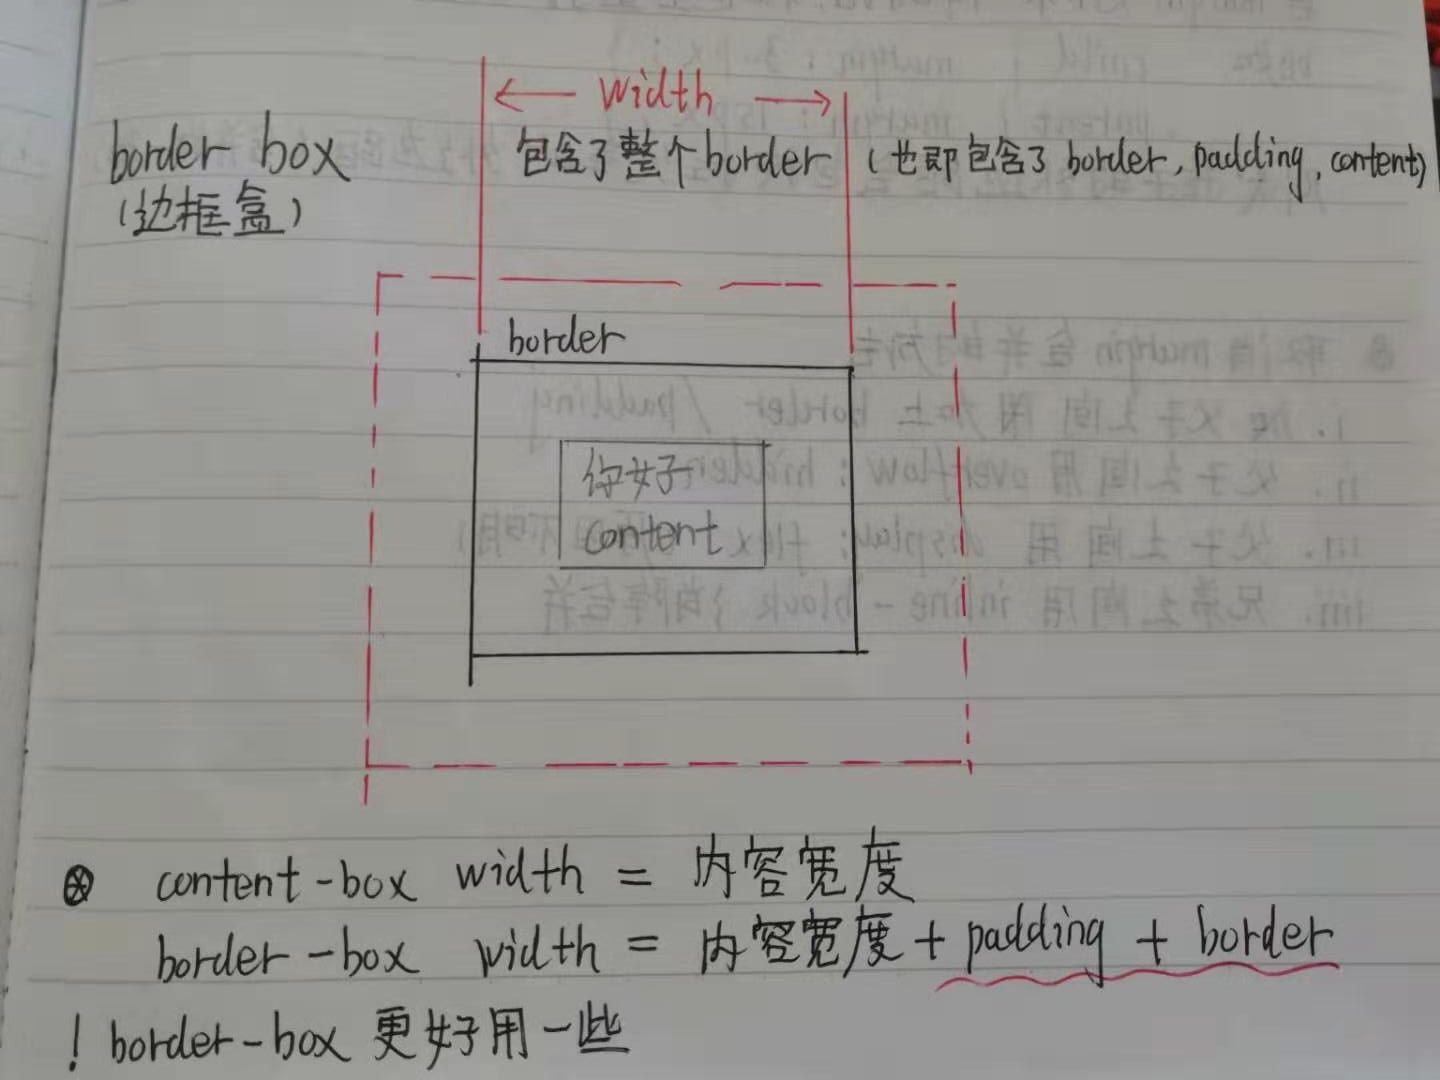 width
border box 包含了整个border (也即包含了 border, padding, content)
(边框盒)
border
你好
content
⊛ content-box width = 内容宽度
border-box width = 内容宽度 + padding + border
! border-box 更好用一些